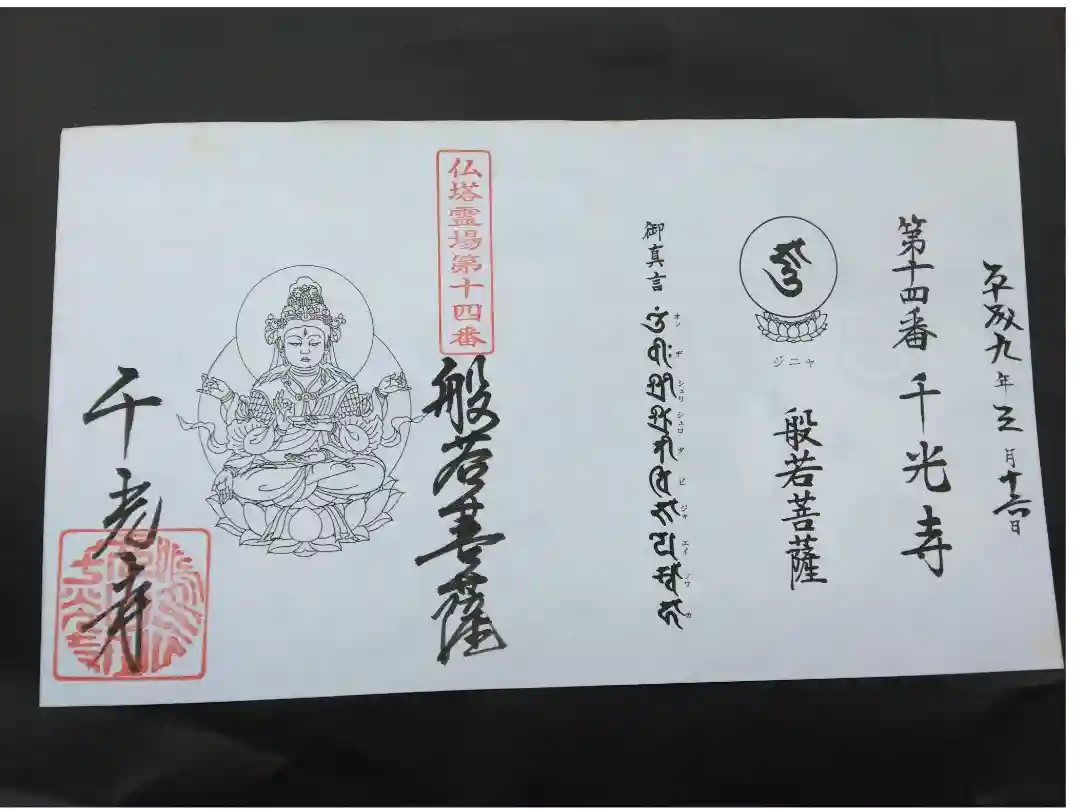 平成九年三月十六日
第十四番 千光寺
ジニャ
般若菩薩
御真言
オン ヂ シュリ シュロ ダ ビ ジャ エイ ソワ カ
仏塔霊場第十四番
般若菩薩
千光寺